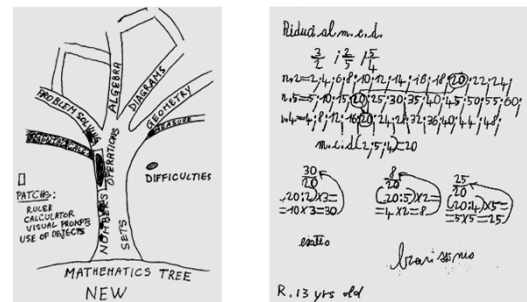 PROBLEM SOLVING
ALGEBRA
DIAGRAMS
GEOMETRY
MEASURE
NUMBERS
OPERATIONS
SETS
DIFFICULTIES
PATCHS:
RULER
CALCULATOR
VISUAL PROMPTS
USE OF OBJECTS
MATHEMATICS TREE
NEW
Riduci al m.c.d.
3/2 ; 2/5 ; 5/4
n.2=2,4,6,8,10,12,14,16,18,20,22,24,
n.5=5,10,15,20,25,30,35,40,45,50,55,60,
n.4=4,8,12,16,20,24,28,32,36,40,44,48,
m.c.d(2,5,4)=20
30/20 8/20 25/20
(20:2)x3= (20:5)x2= (20:4)x5=
=10x3=30 =4x2=8 =5x5=25
esatto
bravissimo
R. 13 yrs old